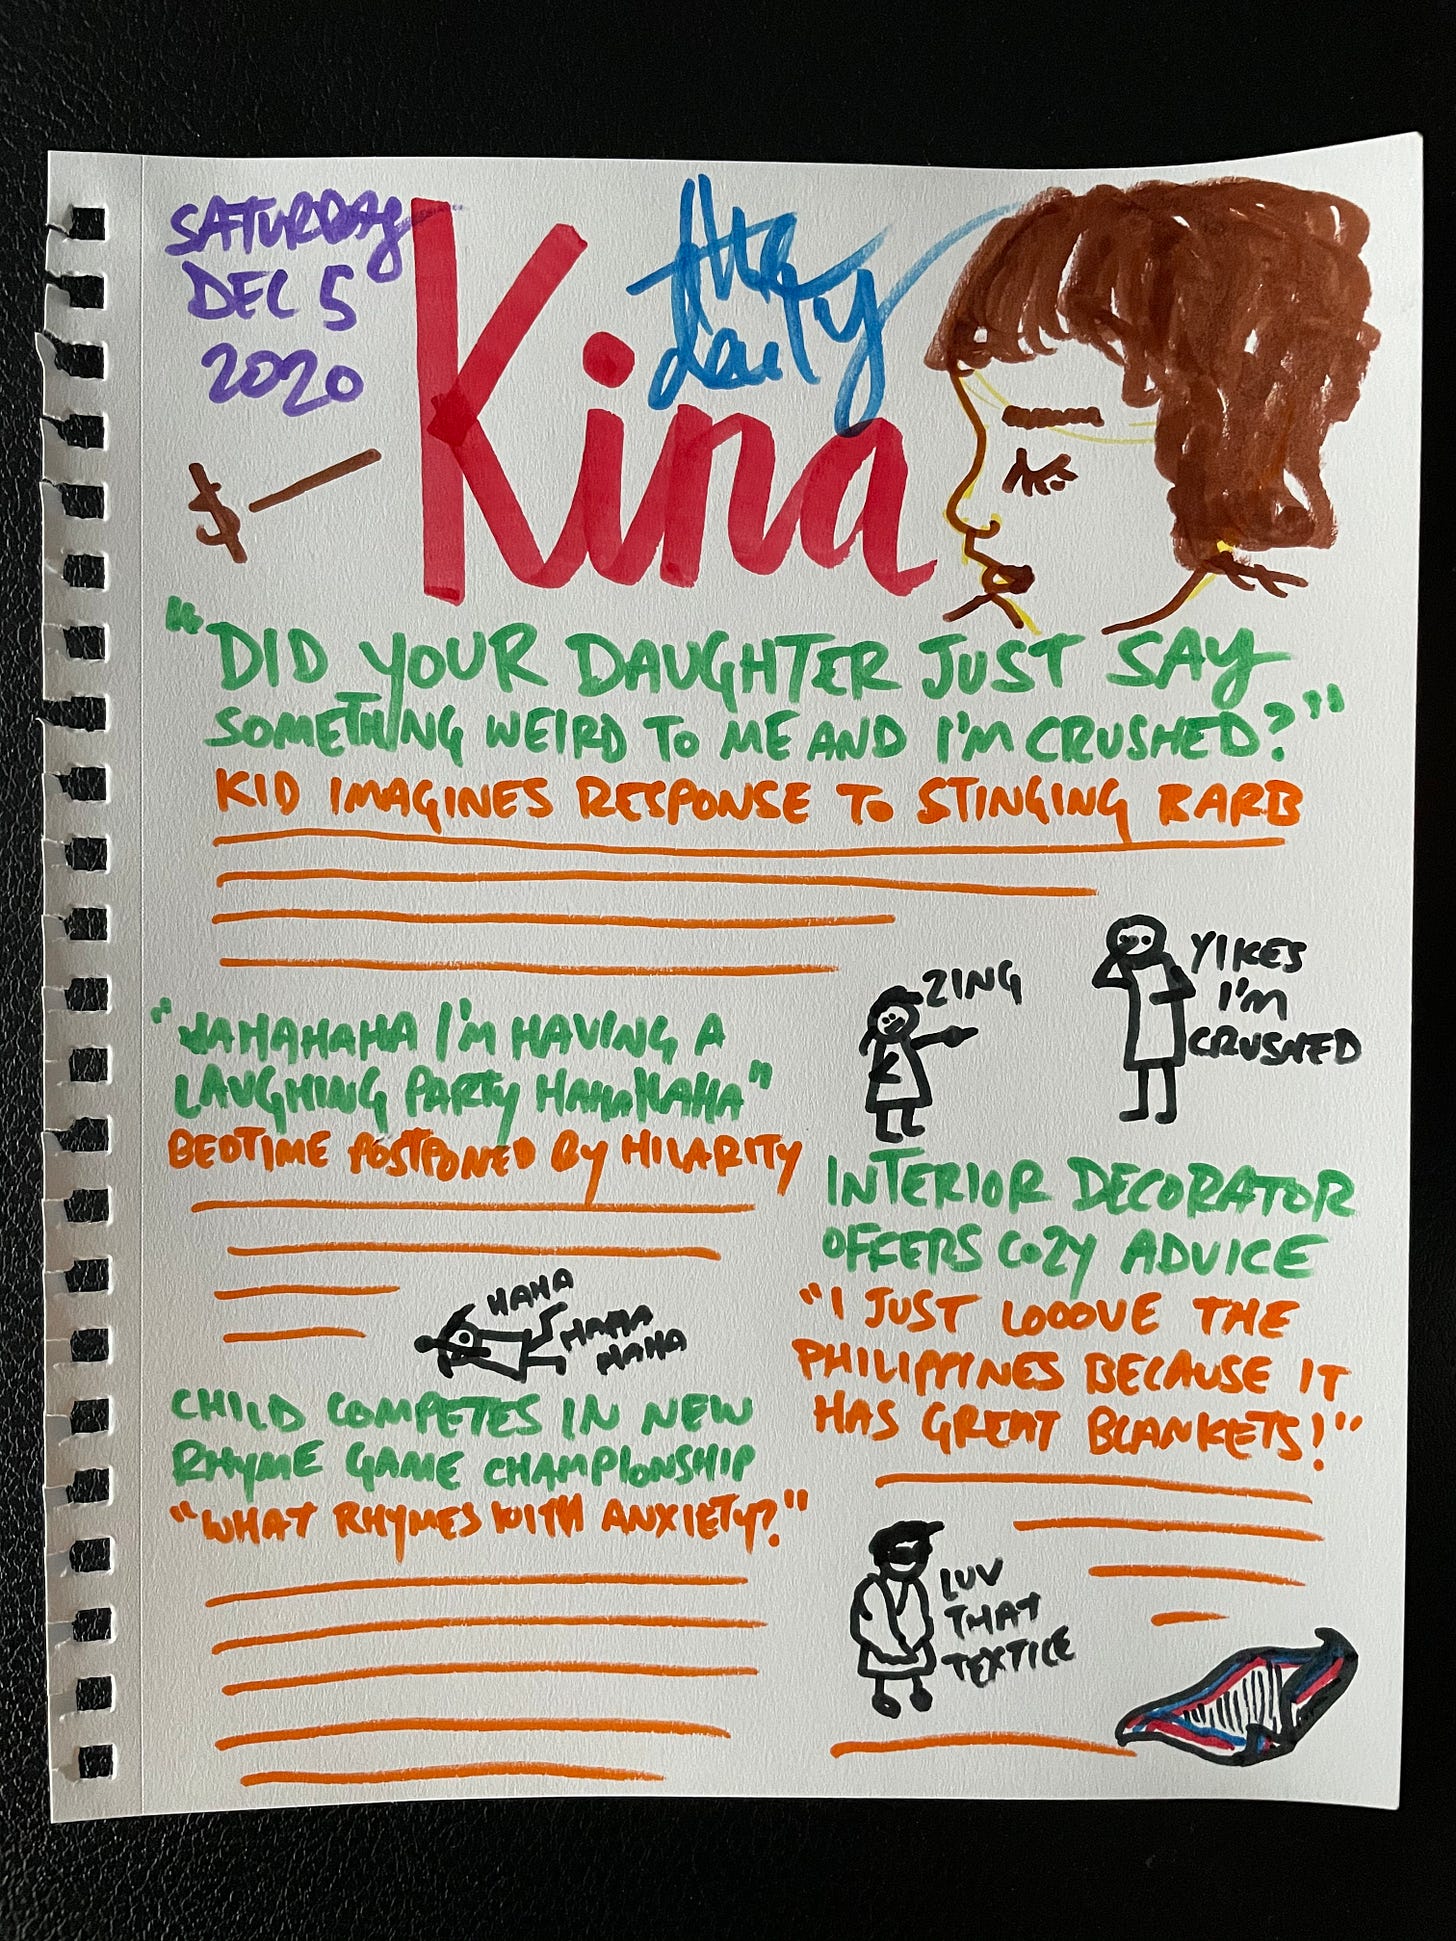 SATURDAY
DEC 5
2020
$—
the
deity
Kina
"DID YOUR DAUGHTER JUST SAY
SOMETHING WEIRD TO ME AND I'M CRUSHED?"
KID IMAGINES RESPONSE TO STINGING BARB
ZING
YIKES
I'M
CRUSHED
"HAHAHAHA I'M HAVING A
LAUGHING PARTY HAHAHAHA"
BEDTIME POSTPONED BY HILARITY
HAHA
HAHA
HAHA
INTERIOR DECORATOR
OFFERS COZY ADVICE
"I JUST LOOOVE THE
PHILIPPINES BECAUSE IT
HAS GREAT BLANKETS!"
LUV
THAT
TEXTILE
CHILD COMPETES IN NEW
RHYME GAME CHAMPIONSHIP
"WHAT RHYMES WITH ANXIETY?"